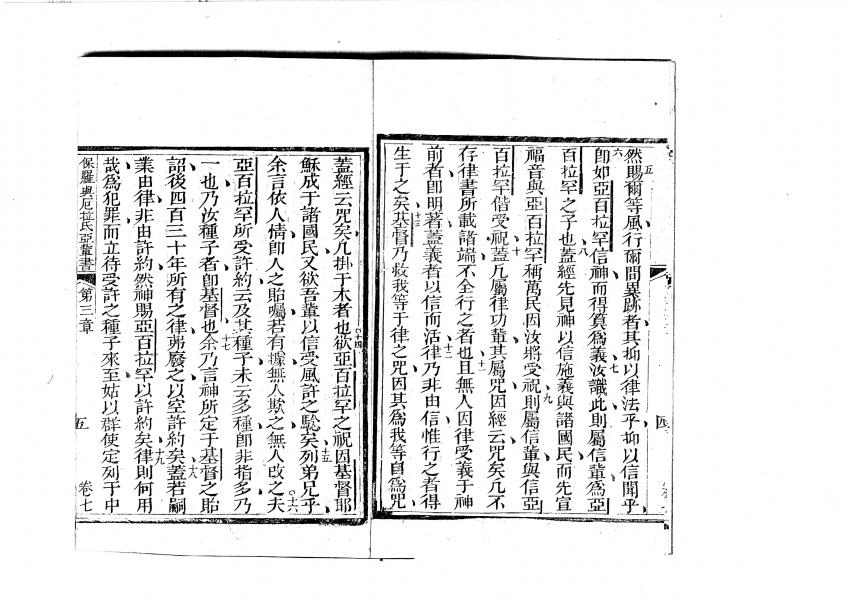 五
然賜爾等風行爾間異跡者其抑以律法乎抑以信聞乎
六 七
即如亞百拉罕信神而得算爲義汝識此則屬信輩爲亞
八
百拉罕之子也蓋經先見神以信施義與諸國民而先宣
九
福音與亞百拉罕稱萬民因汝將受祝則屬信輩與信亞
十
百拉罕偕受祝蓋凡屬律功輩其屬咒因經云咒矣凡不
十一
存律書所載諸端不全行之者也且無人因律受義于神
十二
前者即明著蓋義者以信而活律乃非由信惟行之者得
十三
生于之矣基督乃救我等于律之咒因其爲我等自爲咒
四
十四
蓋經云咒矣凡掛于木者也欲亞百拉罕之祝因基督耶
十五
穌成于諸國民又欲吾輩以信受風許之驗矣列弟兄乎
十六
余言依人情即人之貽囑若有據無人欺之無人改之夫
亞百拉罕所受許約云及其種子未云多種即非指多乃
十七
一也乃汝種子者即基督也余乃言神所定于基督之貽
十八
詔後四百三十年所有之律弗廢之以空許約矣蓋若嗣
十九
業由律非由許約然神賜亞百拉罕以許約矣律則何用
哉爲犯罪而立待受許之種子來至姑以群使定列于中
保羅與厄拉氏亞輩書 第三章 五 卷七